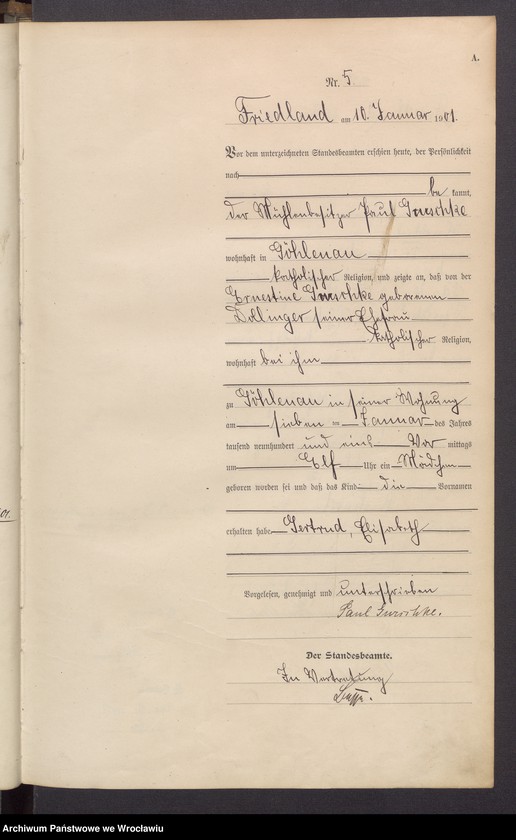 A.
Nr. 5
Friedland am 10. Januar 1901.
Vor dem unterzeichneten Standesbeamten erschien heute, der Persönlichkeit
nach
be kannt,
der Mühlenbesitzer Paul
wohnhaft in Göhlenau
katholischer Religion, und zeigte an, daß von der
Ernestine geborenen
Dollinger seiner Ehefrau
katholischer Religion,
wohnhaft bei ihm
zu Göhlenau in seiner Wohnung
am sieben ten Januar des Jahres
tausend neunhundert und eins Vor mittags
um Elf Uhr ein Mädchen
geboren worden sei und daß das Kind die Vornamen
erhalten habe Gertrud, Elisabeth
Vorgelesen, genehmigt und unterschrieben
Paul
Der Standesbeamte.
In Vertretung
01.
Archiwum Państwowe we Wrocławiu